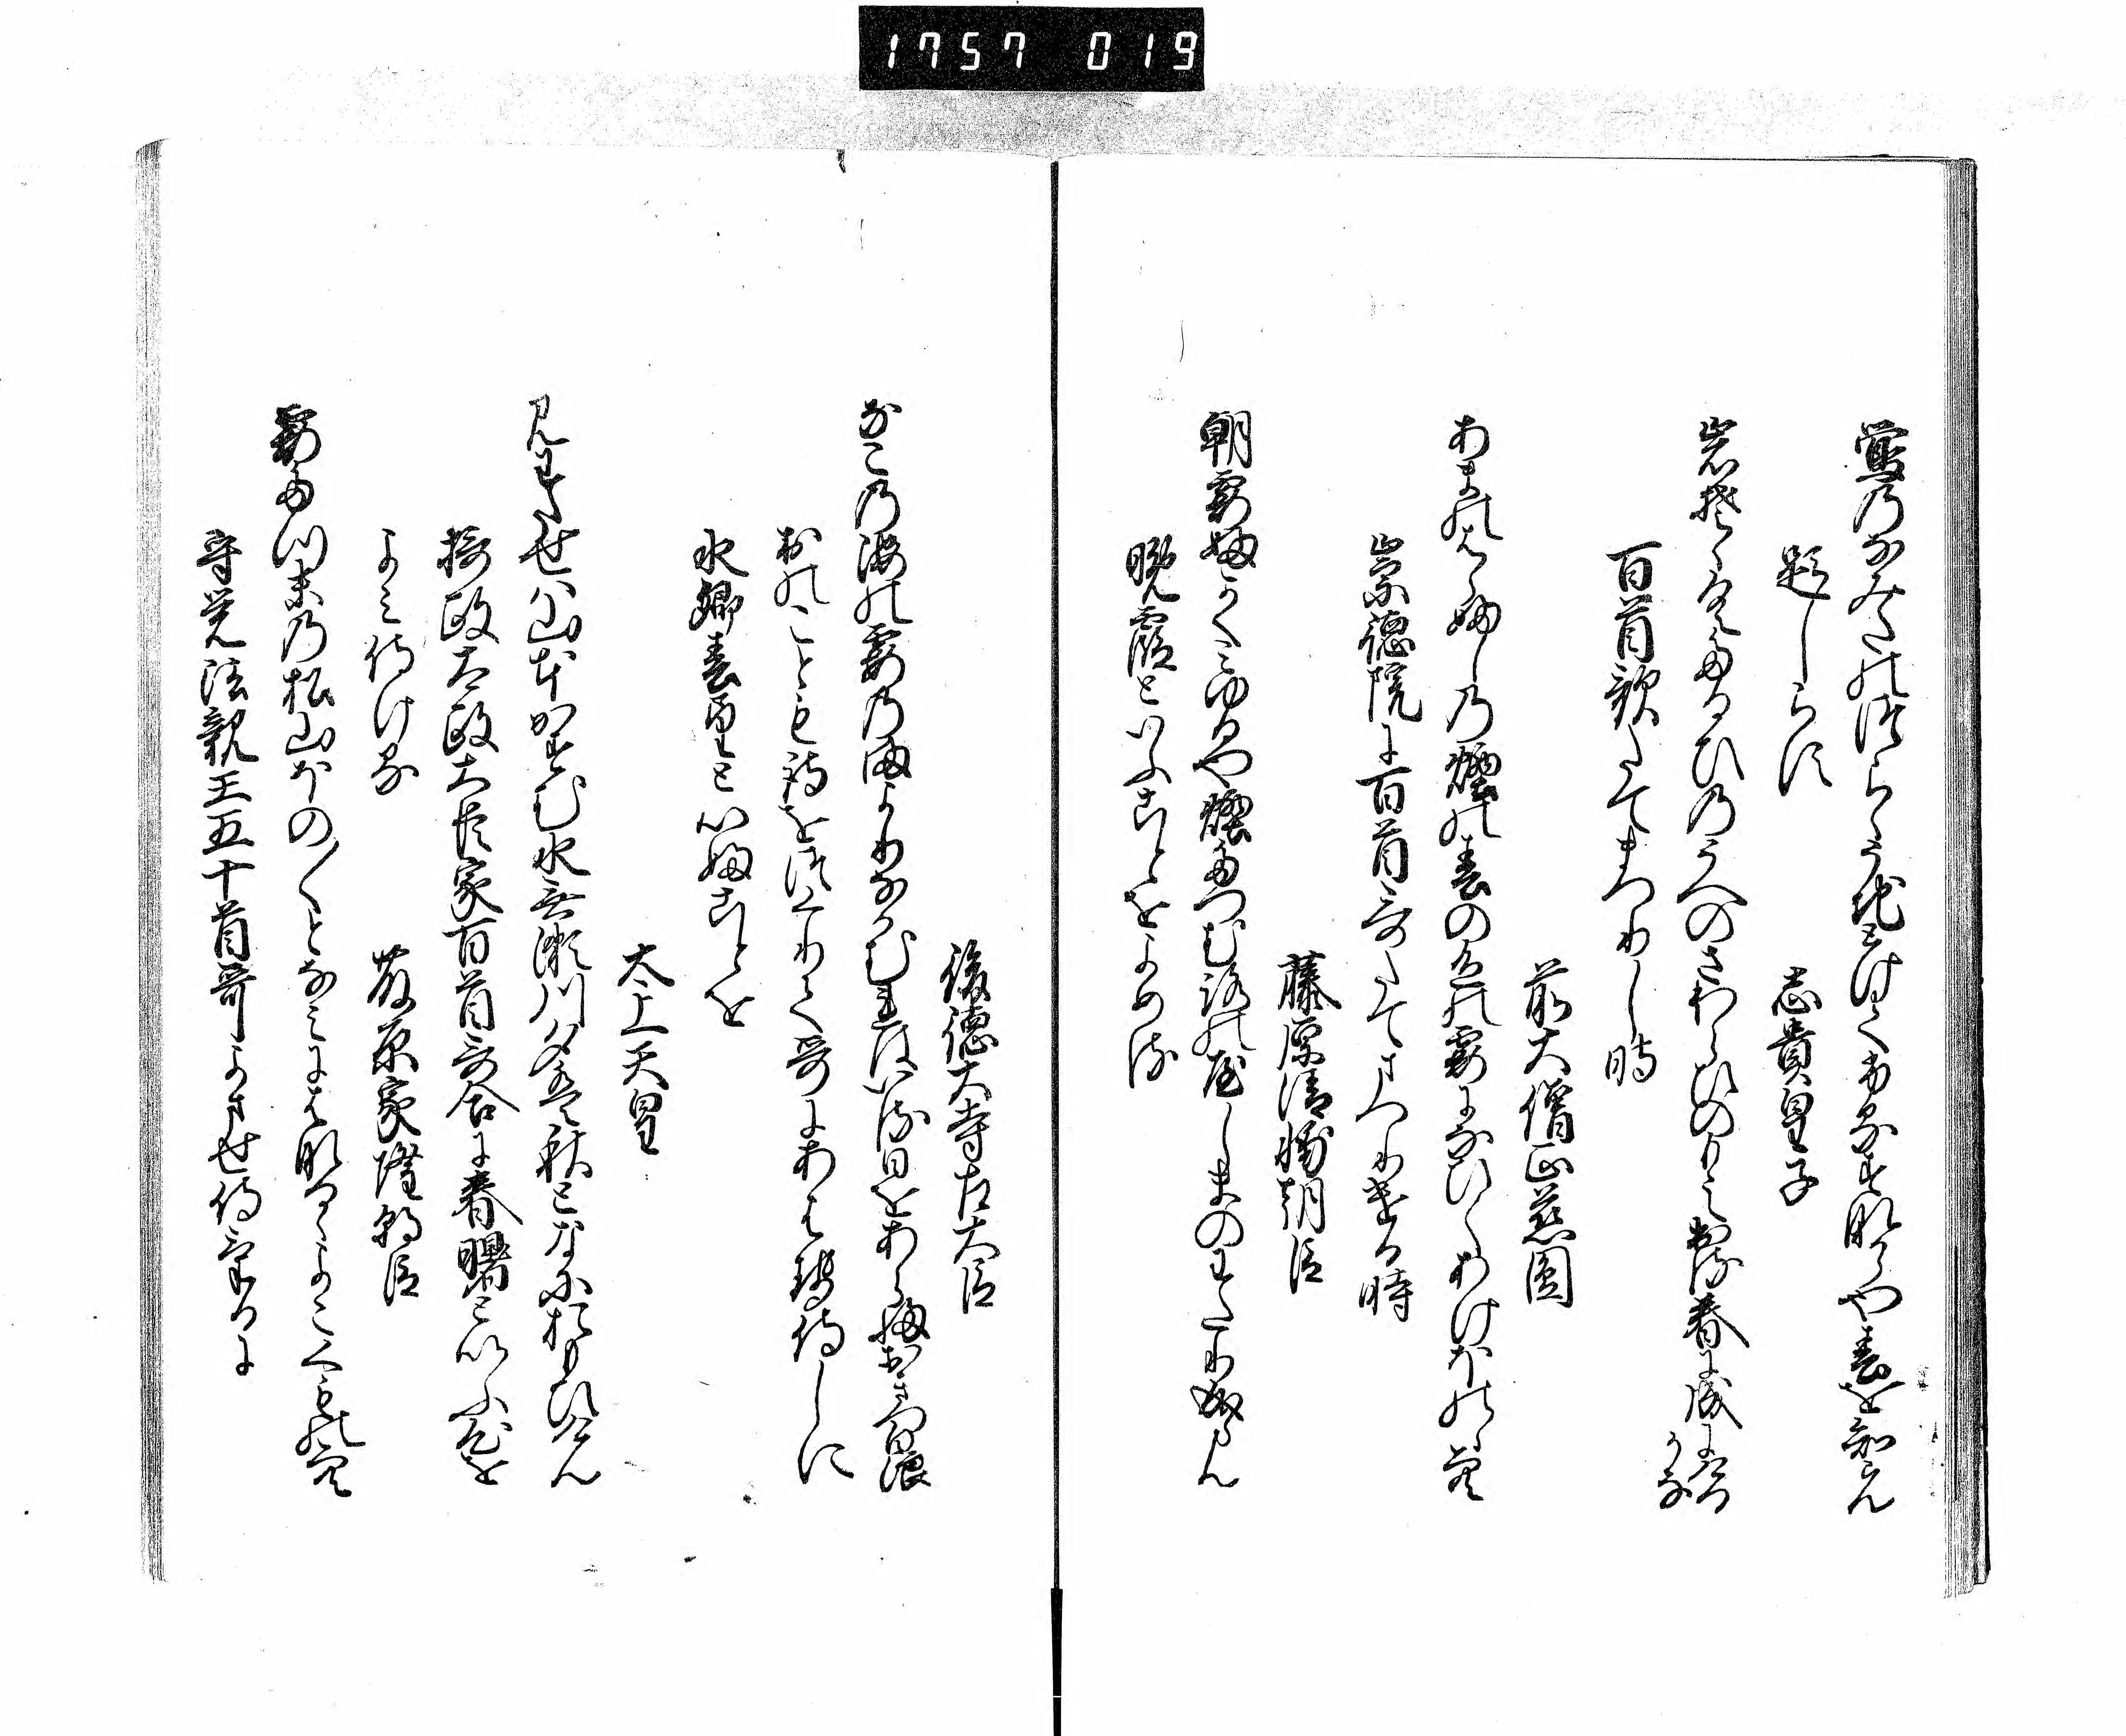 1757 019
鶯のなみたのつらゝうちとけてふるすなからや春を知らん
題しらす
志貴皇子
岩そゝくたるひのうへのさわらひのもえ出る春に成にける
かな
百首歌たてまつりし時
前大僧正慈圓
あまの原ふしの煙の春の色の霞になひくあけほのゝ空
崇徳院に百首哥たてまつりける時
藤原清輔朝臣
朝霞ふかくみゆるや煙たつむろの屋しまのわたり成らん
晩霞といふことをよめる
後徳大寺左大臣
なこの海の霞のまよりなかむれはいる日をあらふおきつ白浪
おのことも詩をつくりて哥にあはせ侍しに
水郷春望といふことを
太上天皇
見わたせは山本かすむ水無瀬川夕へは秋となに思ひけん
摂政太政大臣家百首哥合に春曙といふ心を
よみ侍ける
藤原家隆朝臣
霞たつ末の松山ほの〱となみにはなるゝよこ雲の空
守覚法親王五十首哥よませ侍けるに